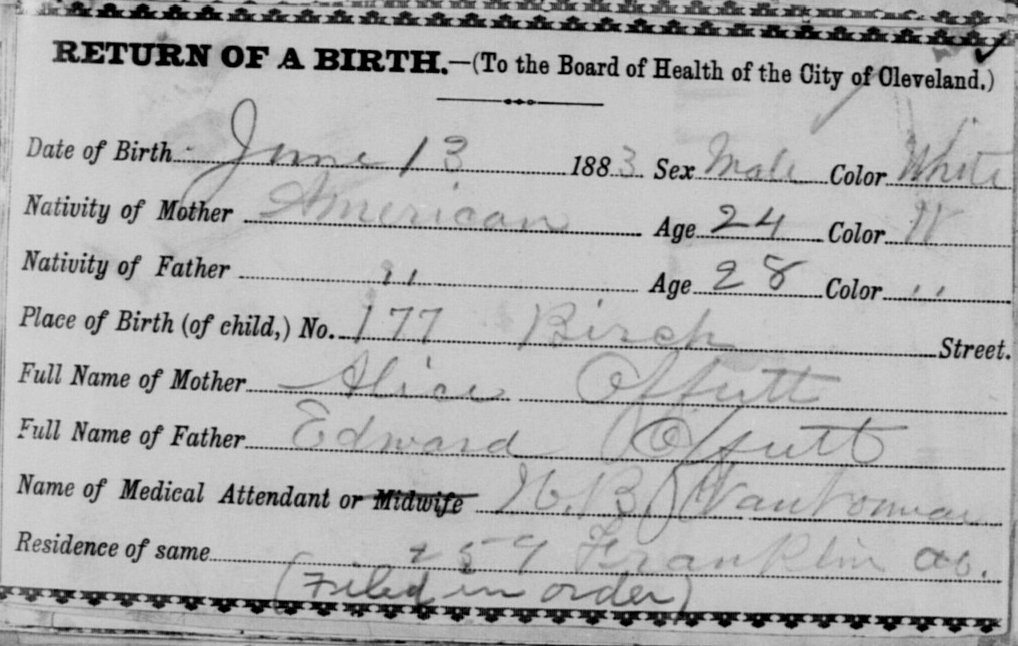 RETURN OF A BIRTH.—(To the Board of Health of the City of Cleveland.)
Date of Birth June 13 1883 Sex Male Color White
Nativity of Mother American Age 24 Color W
Nativity of Father " Age 28 Color "
Place of Birth (of child,) No. 177 Birch Street.
Full Name of Mother Alice Offutt
Full Name of Father Edward Offutt
Name of Medical Attendant or Midwife B.
Residence of same 259 Franklin av.
(Filed in order)